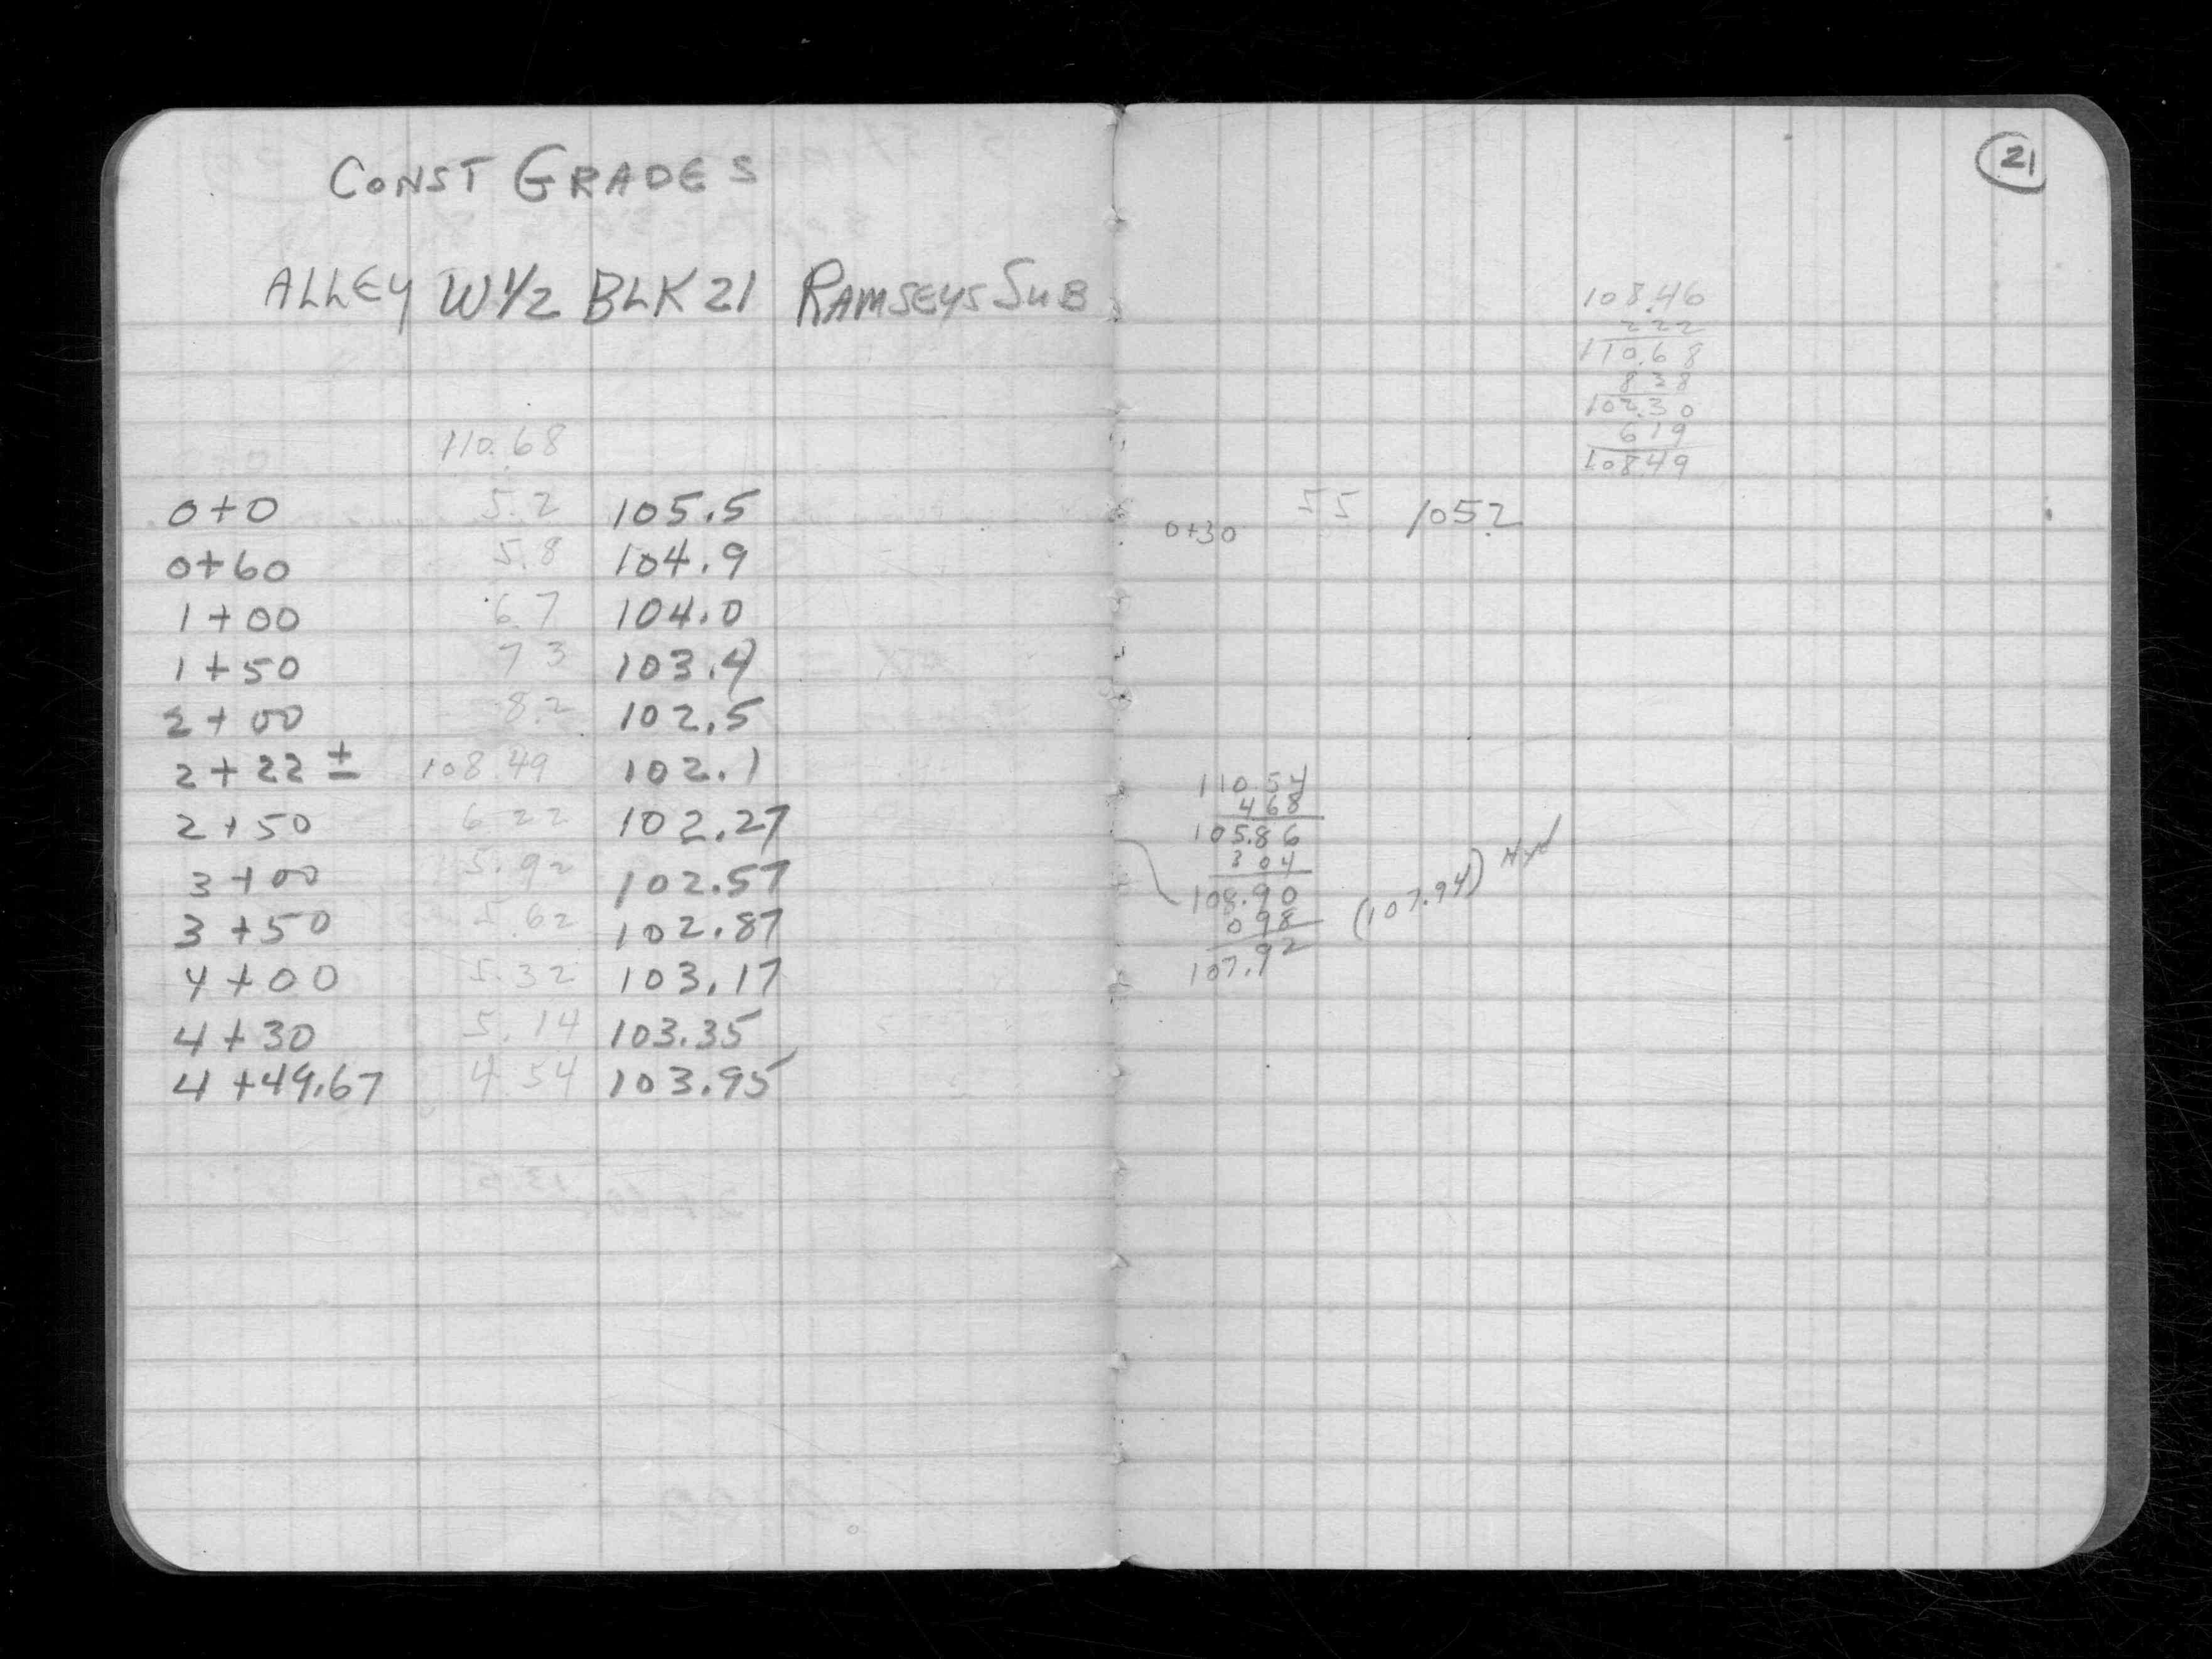 CONST GRADES
ALLEY W1/2 BLK 21 RAMSEYS SUB
110.68
0+0 5.2 105.5
0+60 5.8 104.9
1+00 6.7 104.0
1+50 7 3 103.4
2+00 8.2 102.5
2+22 ± 108.49 102.1
2+50 6 22 102.27
3+00 5.92 102.57
3+50 5.62 102.87
4+00 5.32 103.17
4+30 5.14 103.35
4+49.67 4.54 103.95
21
108.46
222
110.68
838
102.30
619
108.49
0+30 55 105.2
110.54
468
105.86
304
108.90
098
107.92
(107.94) Hyd